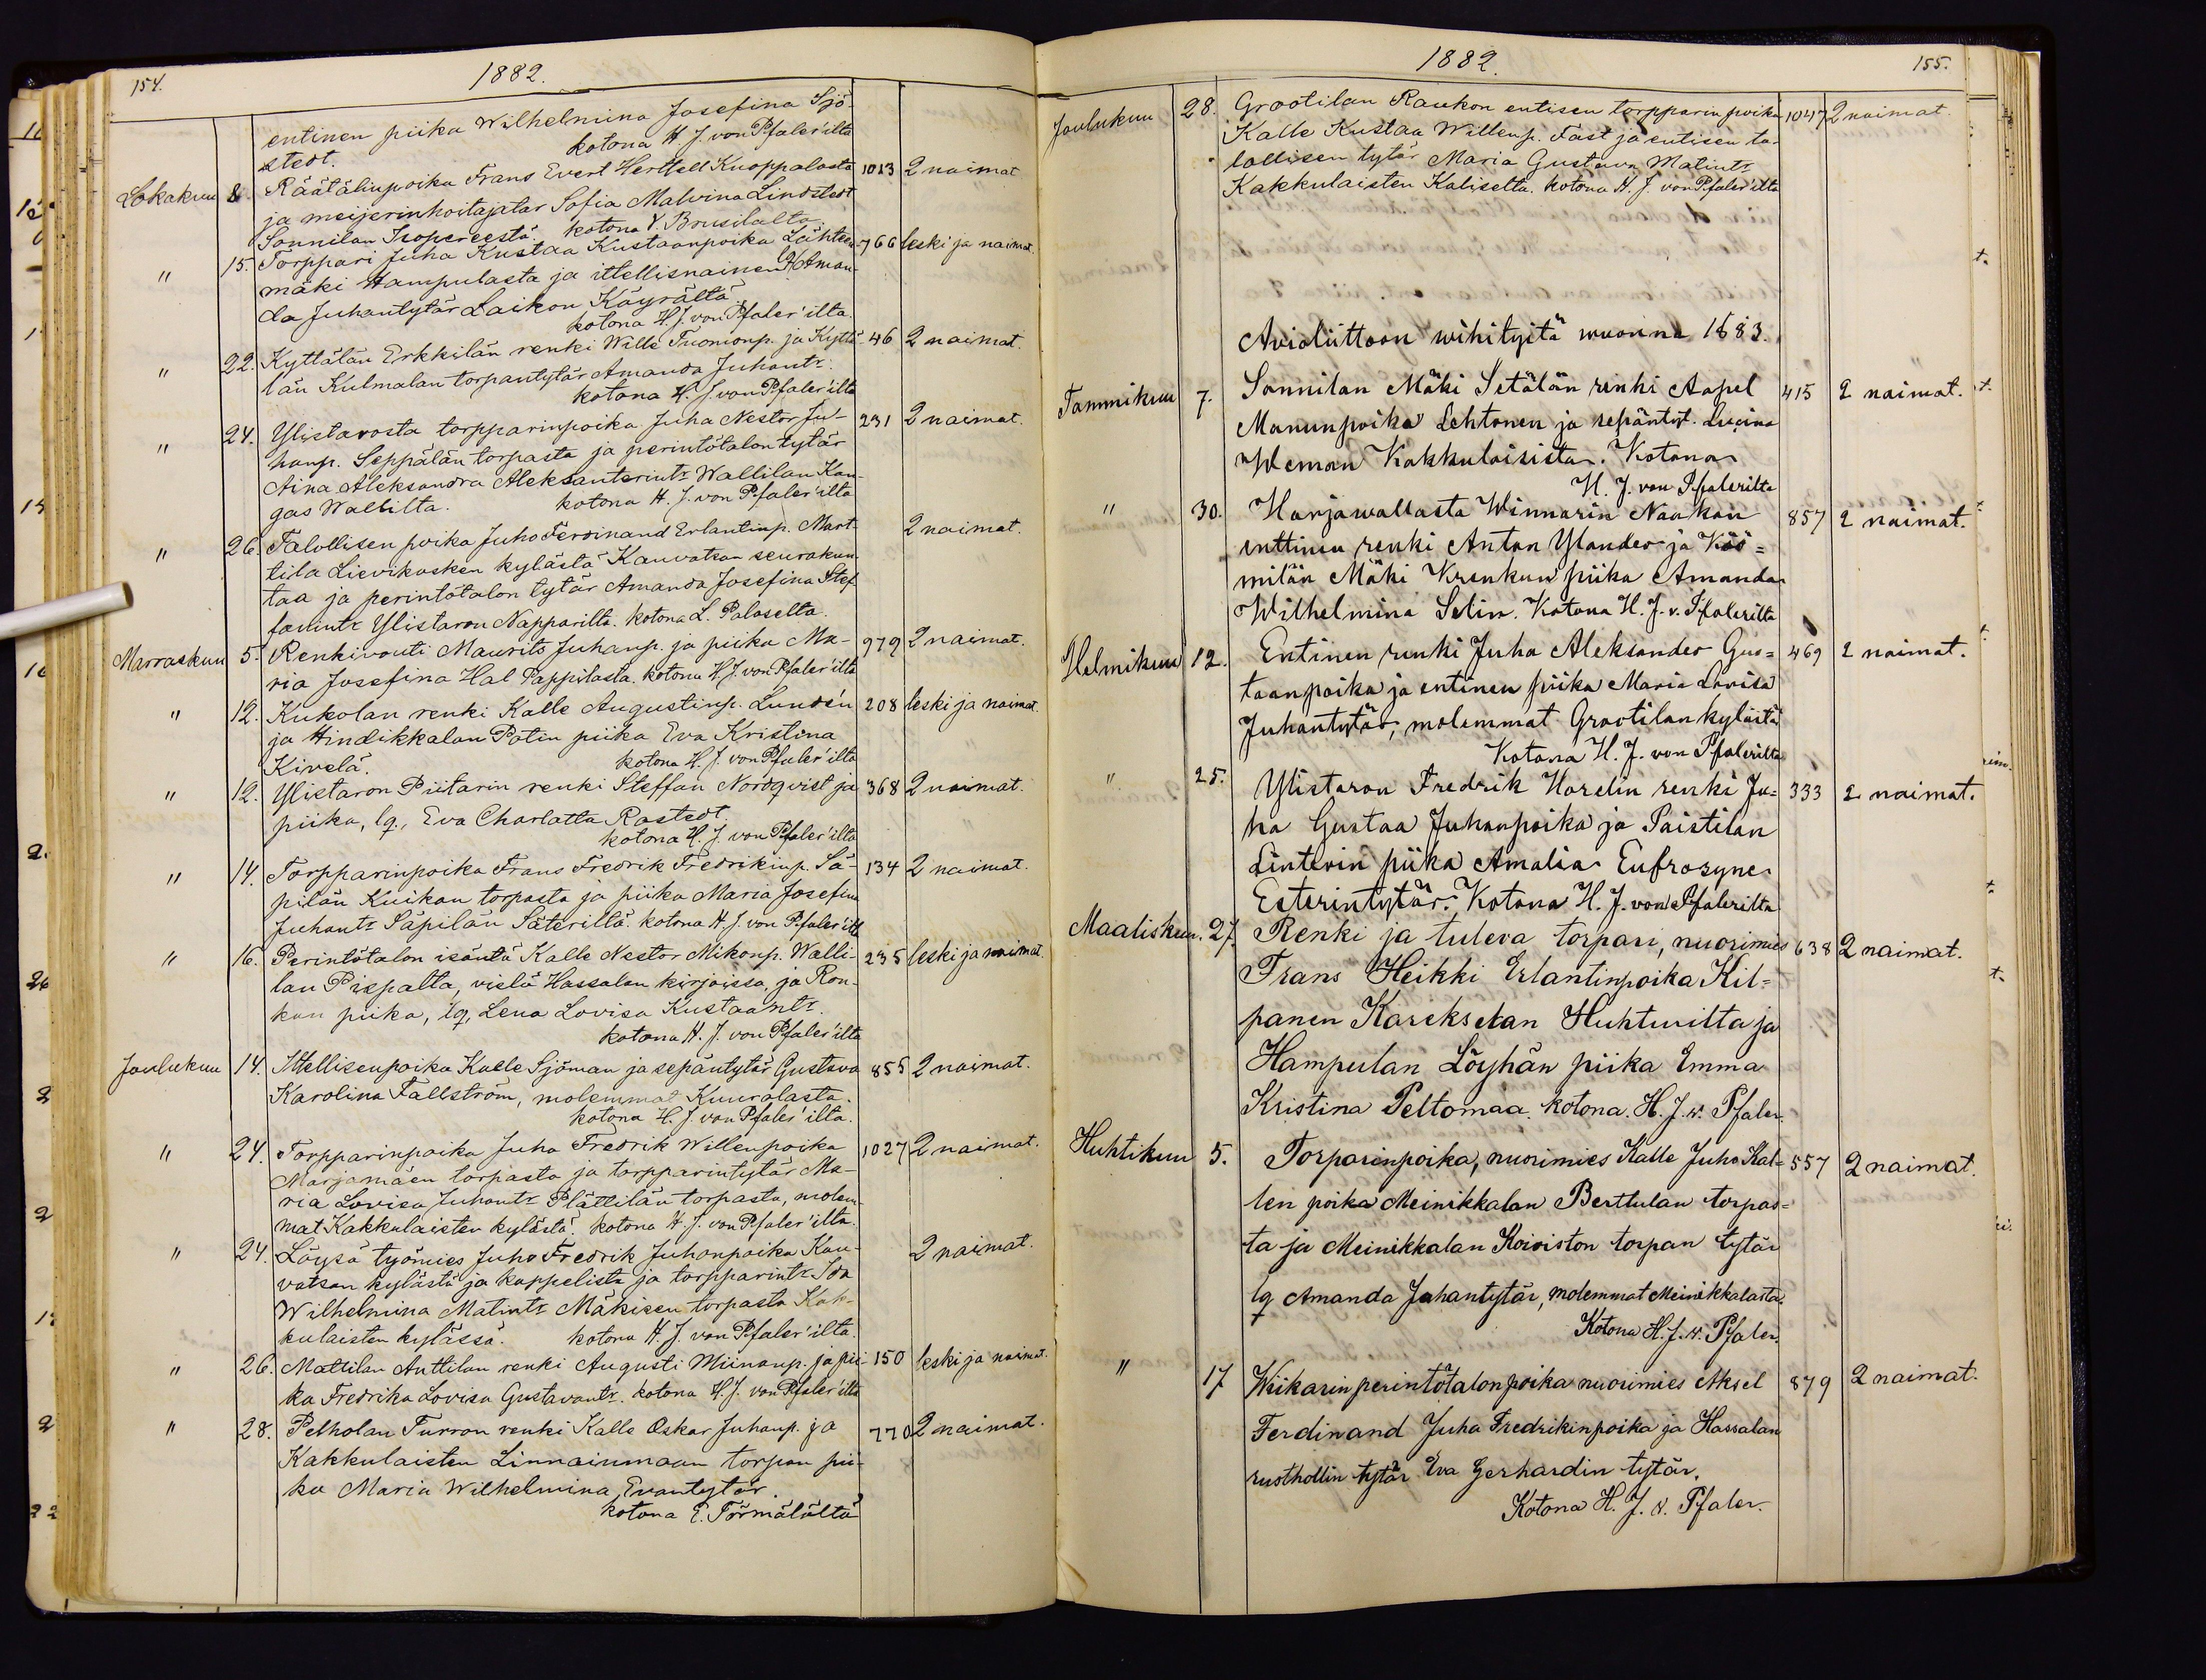 154.
1882.
entinen piika Wilhelmina Josefina Sjö-
stedt. kotona H. J. von Pfaler'ilta
Lokakuu 8. Räätälinpoika Frans Evert Hertsell Kuoppalasta 1013 2 naimat
ja meijerinhoitajatar Sofia Malvina Lindstedt
Sonnilan Isopereestä kotona V. Brusilalta.
" 15. Torppari Juha Kustaa Kustaanpoika Lähteen- 766 leski ja naimat.
mäki Hampulasta ja ittellisnainen Aman-
da Juhantytär Laikon Käyrältä
kotona H. J. von Pfaler'ilta.
" 22. Kyttälän Erkkilän renki Wille Tuomonp. ja Kyttä- 46 2 naimat.
län Kulmalan torpantytär Amanda Juhantr.
kotona H. J. von Pfaler'ilta
" 24. Ylistarosta torpparinpoika Juha Nestor Ju- 231 2 naimat.
hanp. Seppälän torpasta ja perintötalon tytär
Aina Aleksandra Aleksanterintr Wallilan Kan-
gas Wallilta. kotona H. J. von Pfaler'ilta
" 26. Talollisen poika Juho Ferdinand Erlantinp. Mart- 2 naimat.
tila Lievikosken kylästä Kauvatsan seurakun-
taa ja perintötalon tytär Amanda Josefina Stef-
fanintr Ylistaron Napparilta. kotona L. Palaselta.
Marraskuu 5. Renkivouti Maurits Juhanp. ja piika Ma- 979 2 naimat.
ria Josefina Hal Pappilasta. kotona H. J. von Pfaler'ilta
" 12. Kukolan renki Kalle Augustinp. Lundén 208 leski ja naimat.
ja Hindikkalan Potin piika Eva Kristina
Kivelä. kotona H. J. von Pfaler'ilta
" 12. Ylistaron Piitarin renki Steffan Nordqvist ja 368 2 naimat.
piika, lq., Eva Charlatta Rastedt.
kotona H. J. von Pfaler'ilta
" 14. Torpparinpoika Frans Fredrik Fredrikinp. Sä- 134 2 naimat.
pilän Kuikan torpasta ja piika Maria Josefina
Juhantr Säpilän Säteriltä. kotona H. J. von Pfaler'ilta
" 16. Perintötalon isäntä Kalle Nestor Mikonp. Walli- 235 leski ja naimat.
lan Pispalta, vielä Hassalan kirjoissa, ja Ron-
kan piika, lq, Lena Lovisa Kustaantr.
kotona H. J. von Pfaler'ilta
Joulukuu 14. Ittellisenpoika Kalle Sjöman ja sepäntytär Gustava 855 2 naimat.
Karolina Fallström, molemmat Kuurolasta.
kotona H. J. von Pfaler'ilta.
" 24. Torpparinpoika Juha Fredrik Willenpoika 1027 2 naimat.
Marjamäen torpasta ja torpparintytär Ma-
ria Lovisa Juhantr Plättilän torpasta, molem-
mat Kakkulaisten kylästä kotona H. J. von Pfaler'ilta.
" 24. Löysä työmies Juho Fredrik Juhanpoika Kau- 2 naimat.
vatsan kylästä ja kappelista ja torpparintr Ida
Wilhelmina Matintr Mäkisen torpasta Kak-
kulaisten kylässä. kotona H. J. von Pfaler'ilta.
" 26. Mattilan Anttilan renki Augusti Miinanp. ja pii- 150 leski ja naimat.
ka Fredrika Lovisa Gustavantr. kotona H. J. von Pfaler'ilta
" 28. Petholan Turron renki Kalle Oskar Juhanp. ja 770 2 naimat.
Kakkulaisten Linnainmaan torpan pii-
ka Maria Wilhelmina Evantytär.
kotona E. Törmälältä
1882.
155.
Joulukuu 28. Grootilan Raukon entisen torpparin poika 1047 2 naimat.
Kalle Kustaa Willenp. Fast ja entisen ta-
lollisen tytär Maria Gustava Matintr
Kakkulaisten Kaliselta. kotona H. J. von Pfaler'ilta
Avioliittoon wihityitä wuonna 1883.
Tammikuu 7. Sonnilan Mäki Setälän renki Aapel 415 2 naimat.
Manunpoika Lehtonen ja sepäntyt. Lucina
Weman Kakkulaisista. Kotona
H. J. von Pfalerilta
" 30. Harjawallasta Winnarin Naakan 857 2 naimat.
enttinen renki Anton Ylander ja Köö=
milän Mäki Krenkun piika Amanda
Wilhelmina Selin. Kotona H. J. v. Pfalerilta
Helmikuu 12. Entinen renki Juha Aleksander Gus= 469 2 naimat.
taanpoika ja entinen piika Maria Lovisa
Juhantytär, molemmat Grootilan kylästä
Kotona H. J. von Pfalerilta
" 25. Ylistaron Fredrik Horelin renki Ju= 333 2 naimat.
ha Gustaa Juhanpoika ja Paistilan
Linterin piika Amalia Eufrosyne
Esterintytär. Kotona H. J. von Pfalerilta
Maaliskuu. 27. Renki ja tuleva torpari, nuorimies 638 2 naimat.
Frans Heikki Erlantinpoika Kil=
panen Karekselan Huhturilta ja
Hampulan Löyhän piika Emma
Kristina Peltomaa. kotona. H. J. v. Pfaler.
Huhtikuu 5. Torparinpoika, nuorimies Kalle Juho Kal= 557 2 naimat.
len poika Meinikkalan Berttulan torpas=
ta ja Meinikkalan Koiviston torpan tytär
lq Amanda Juhantytär, molemmat Meinikkalasta.
Kotona H. J. v. Pfaler.
" 17 Wiikarin perintötalon poika nuorimies Aksel 879 2 naimat.
Ferdinand Juha Fredrikinpoika ja Hassalan
rusthollin tytär Eva Gerhardin tytär.
Kotona H. J. v. Pfaler.